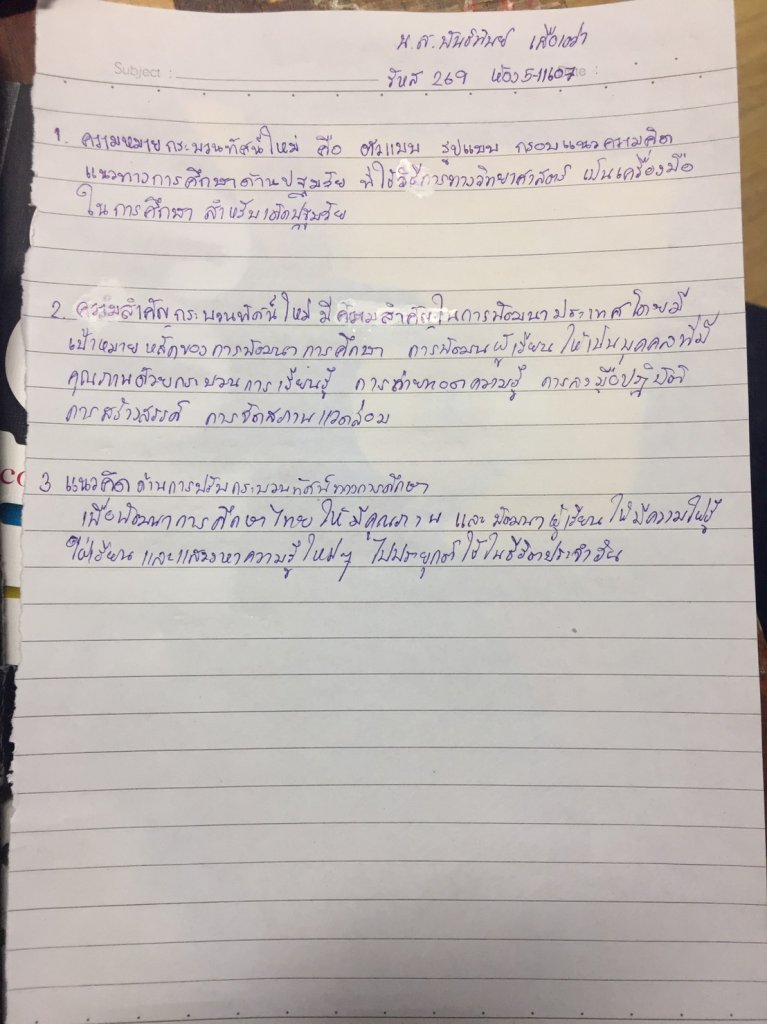 น.ส.พันธ์ทิพย์ เสือเฒ่า
Subject : รหัส 269 ห้อง 5-11607 :
1. ความหมายกระบวนทัศน์ใหม่ คือ ตัวแบบ รูปแบบ กรอบแนวความคิด
แนวทางการศึกษาด้านปฐมวัย ที่ใช้วิธีการทางวิทยาศาสตร์ เป็นเครื่องมือ
ในการศึกษา สำหรับเด็กปฐมวัย
2. ความสำคัญกระบวนทัศน์ใหม่ มีความสำคัญในการพัฒนาประเทศโดยมี
เป้าหมายหลักของการพัฒนาการศึกษา การพัฒนผู้เรียนให้เป็นบุคคลที่มี
คุณภาพด้วยกระบวนการเรียนรู้ การถ่ายทอดความรู้ การลงมือปฏิบัติ
การสร้างสรรค์ การจัดสภาพแวดล้อม
3 แนวคิดด้านการปรับกระบวนทัศน์ทางการศึกษา
เพื่อพัฒนาการศึกษาไทยให้มีคุณภาพ และพัฒนาผู้เรียนให้มีความใฝ่รู้
ใฝ่เรียน และแสวงหาความรู้ใหม่ๆ ไปประยุกต์ใช้ในชีวิตประจำวัน